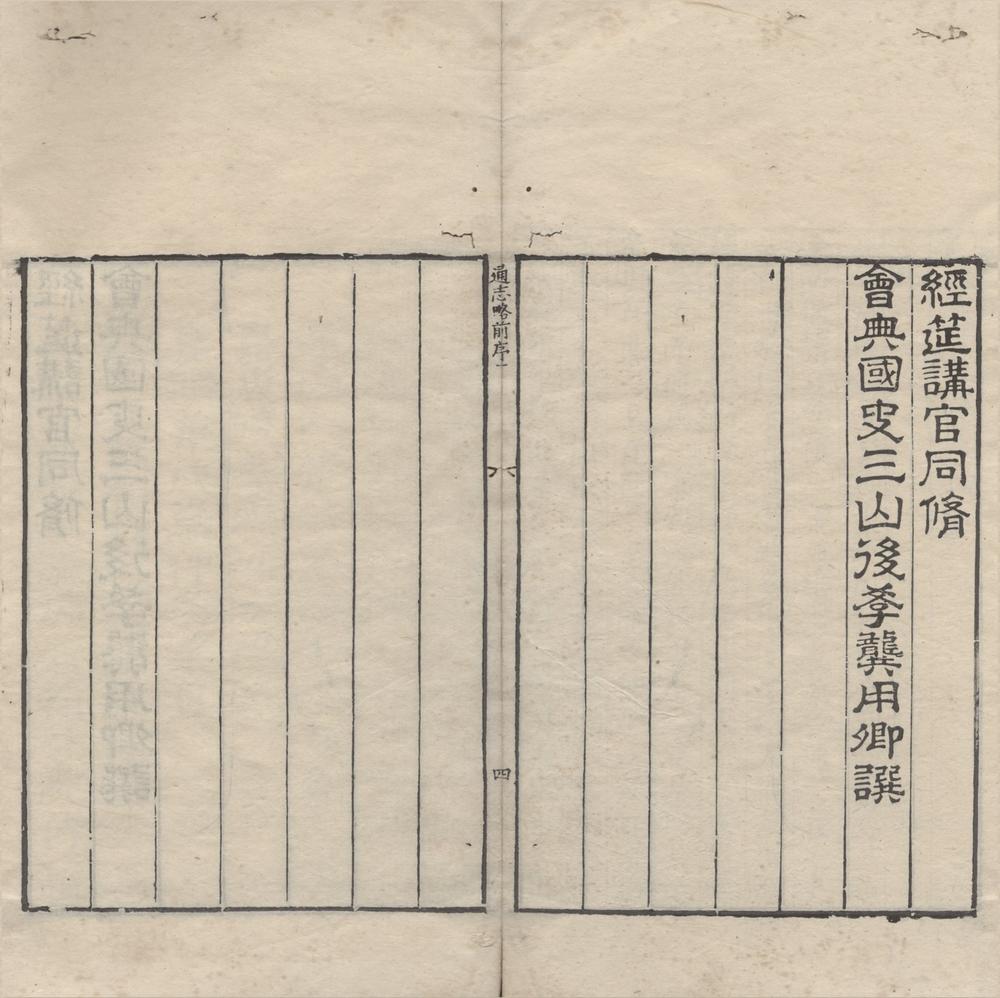 經筵講官同脩
會典國史三山後學龔用卿譔
通志略前序一
四